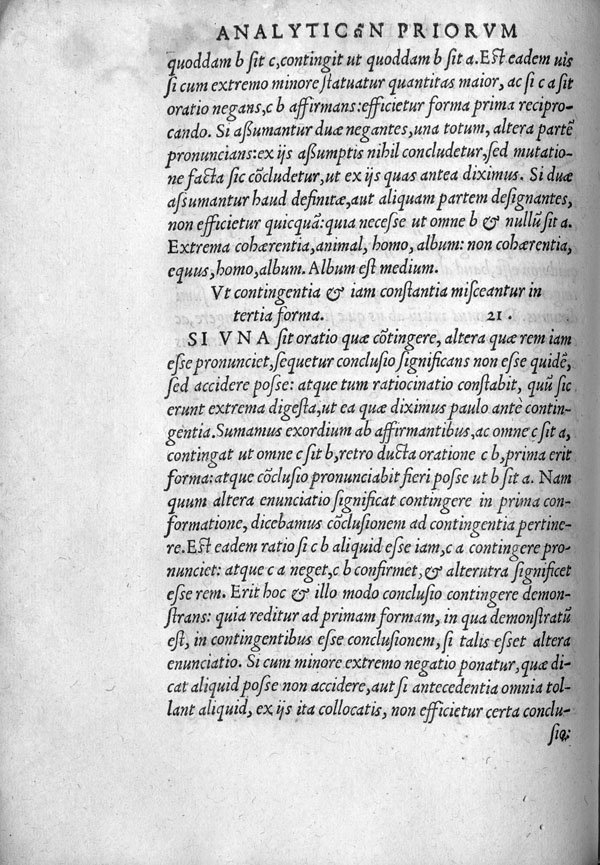 ANALYTICωN PRIORVM
quoddam b sit c,contingit ut quoddam b sit a.Est eadem uis
si cum extremo minore statuatur quantitas maior, ac si c a sit
oratio negans,c b affirmans:efficietur forma prima recipro-
cando. Si aßumantur duæ negantes,una totum, altera partē
pronuncians:ex ijs aßumptis nihil concludetur,sed mutatio-
ne facta sic cōcludetur,ut ex ijs quas antea diximus. Si duæ
assumantur haud definitæ,aut aliquam partem designantes,
non efficietur quicquā:quia necesse ut omne b & nullū sit a.
Extrema cohærentia,animal, homo, album: non cohærentia,
equus,homo,album. Album est medium.
Vt contingentia & iam constantia misceantur in
tertia forma. 21.
SI VNA sit oratio quæ cōtingere, altera quæ rem iam
esse pronunciet,sequetur conclusio significans non esse quidē,
sed accidere posse: atque tum ratiocinatio constabit, quū sic
erunt extrema digesta,ut ea quæ diximus paulo antè contin-
gentia.Sumamus exordium ab affirmantibus,ac omne c sit a,
contingat ut omne c sit b,retro ducta oratione c b,prima erit
forma:atque cōclusio pronunciabit fieri posse ut b sit a. Nam
quum altera enunciatio significat contingere in prima con-
formatione, dicebamus cōclusionem ad contingentia pertine-
re.Est eadem ratio si c b aliquid esse iam,c a contingere pro-
nunciet: atque c a neget,c b confirmet,& alterutra significet
esse rem. Erit hoc & illo modo conclusio contingere demon-
strans: quia reditur ad primam formam, in qua demonstratū
est, in contingentibus esse conclusionem,si talis esset altera
enunciatio. Si cum minore extremo negatio ponatur,quæ di-
cat aliquid posse non accidere,aut si antecedentia omnia tol-
lant aliquid, ex ijs ita collocatis, non efficietur certa conclu-
sio: